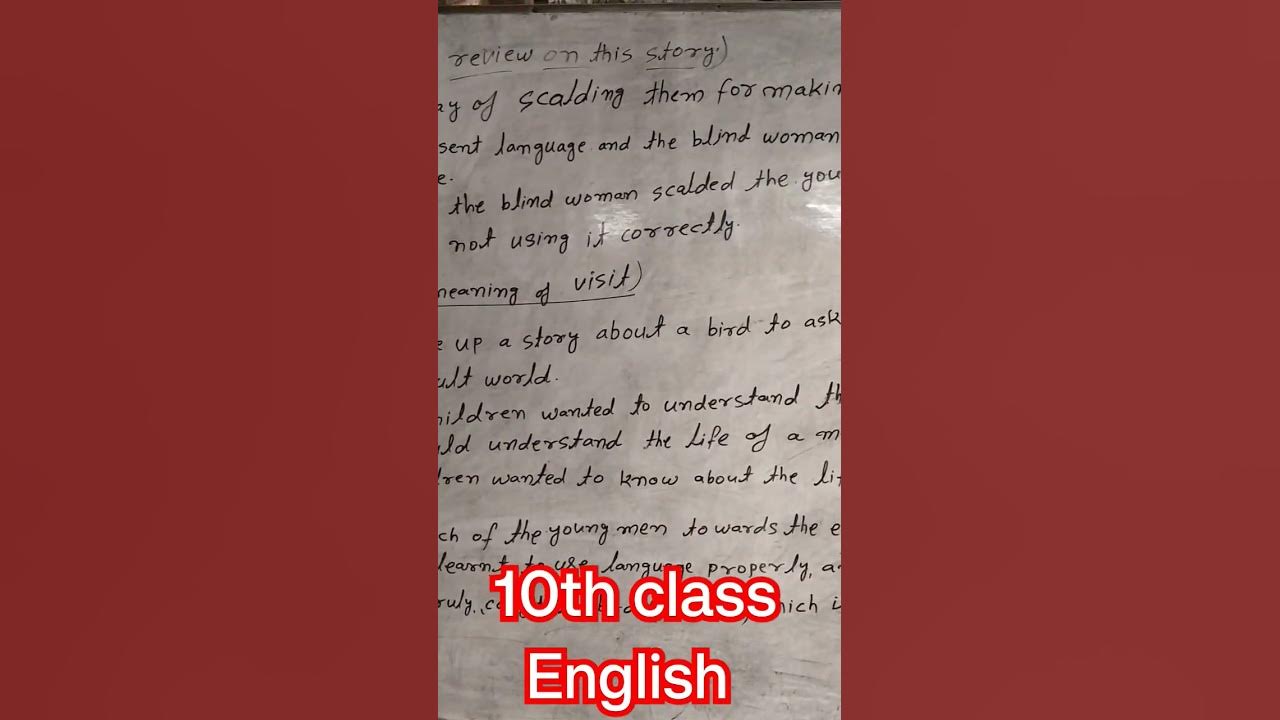 review on this story.)
ay of scalding them for makin
sent language and the blind woman
e.
the blind woman scalded the you
not using it correctly.
meaning of visit)
e up a story about a bird to ask
ult world.
hildren wanted to understand th
uld understand the life of a m
dren wanted to know about the lif
ch of the young men towards the e
learnt to use language properly, a
ruly, hich i
10th class
English